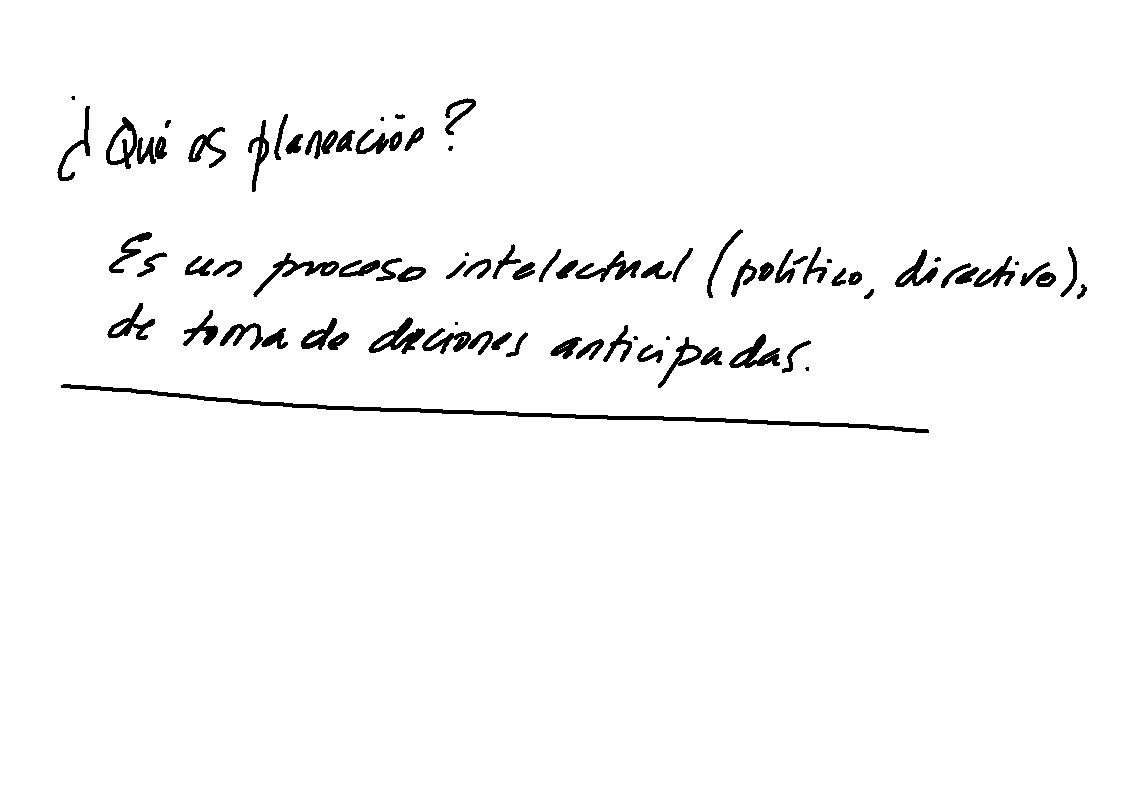 ¿Qué es planeación?
Es un proceso intelectual (político, directivo),
de toma de deciones anticipadas.